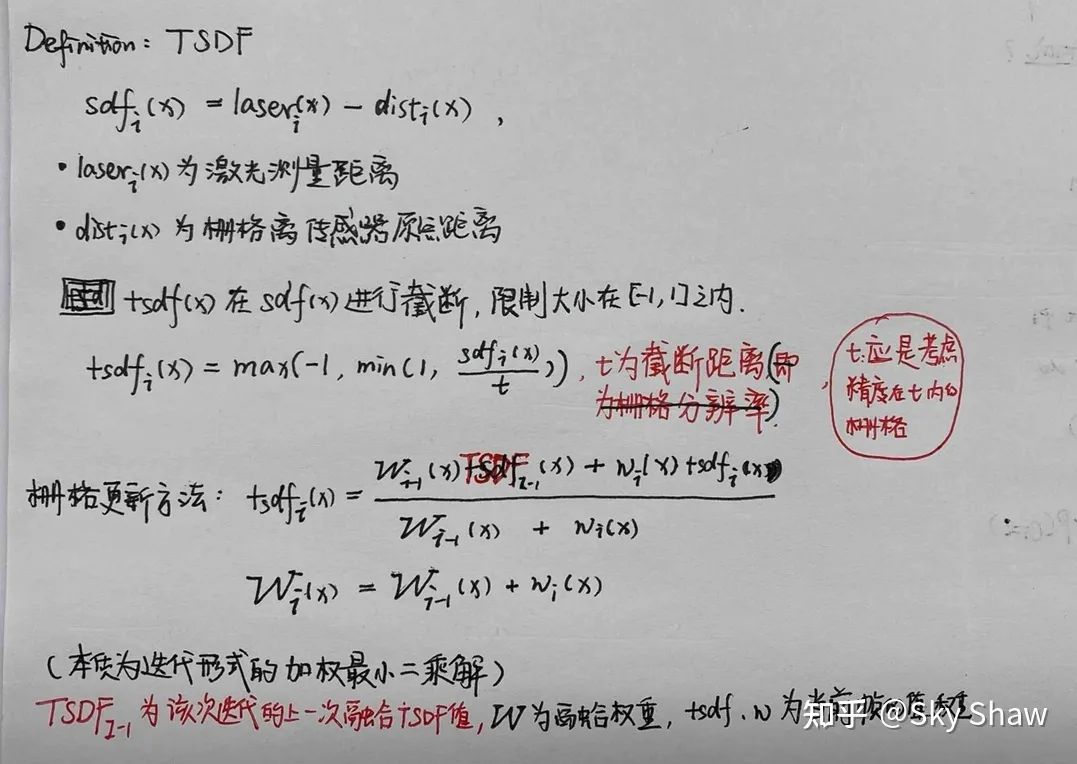 Definition: TSDF
sdf_i(x) = laser_i(x) - dist_i(x),
• laser_i(x)为激光测量距离
• dist_i(x)为栅格离传感器原点距离
tsdf(x)在sdf(x)进行截断,限制大小在[-1,1]之内.
tsdf_i(x) = max(-1, min(1, sdf_i(x)/t)), t为截断距离(即
为栅格分辨率).
t应是考虑
精度在t内的
栅格
栅格更新方法: tsdf_i(x) = (W_{i-1}(x)TSDF_{i-1}(x) + w_i(x)tsdf_i(x)) / (W_{i-1}(x) + w_i(x))
W_i(x) = W_{i-1}(x) + w_i(x)
(本质为迭代形式的加权最小二乘解)
TSDF_{i-1}为该次迭代的上一次融合TSDF值, W为融合权重, tsdf、w为当前
知乎 @Sky Shaw